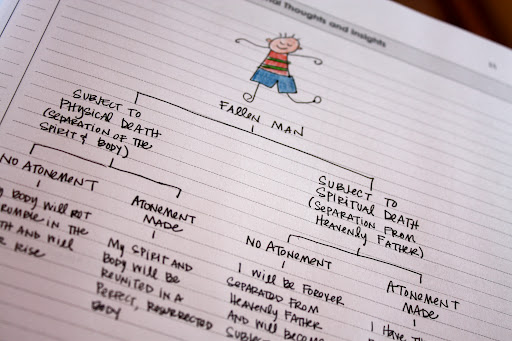 Thoughts and Insights
FALLEN MAN
SUBJECT TO
PHYSICAL DEATH
(SEPARATION OF THE
SPIRIT & BODY)
NO ATONEMENT
BODY WILL ROT
CRUMBLE IN THE
AND WILL
RISE
ATONEMENT
MADE
MY SPIRIT AND
BODY WILL BE
REUNITED IN A
PERFECT, RESURRECTED
BODY
SUBJECT TO
SPIRITUAL DEATH
(SEPARATION FROM
HEAVENLY FATHER)
NO ATONEMENT
I WILL BE FOREVER
SEPARATED FROM
HEAVENLY FATHER
AND WILL BECOME
ATONEMENT
MADE